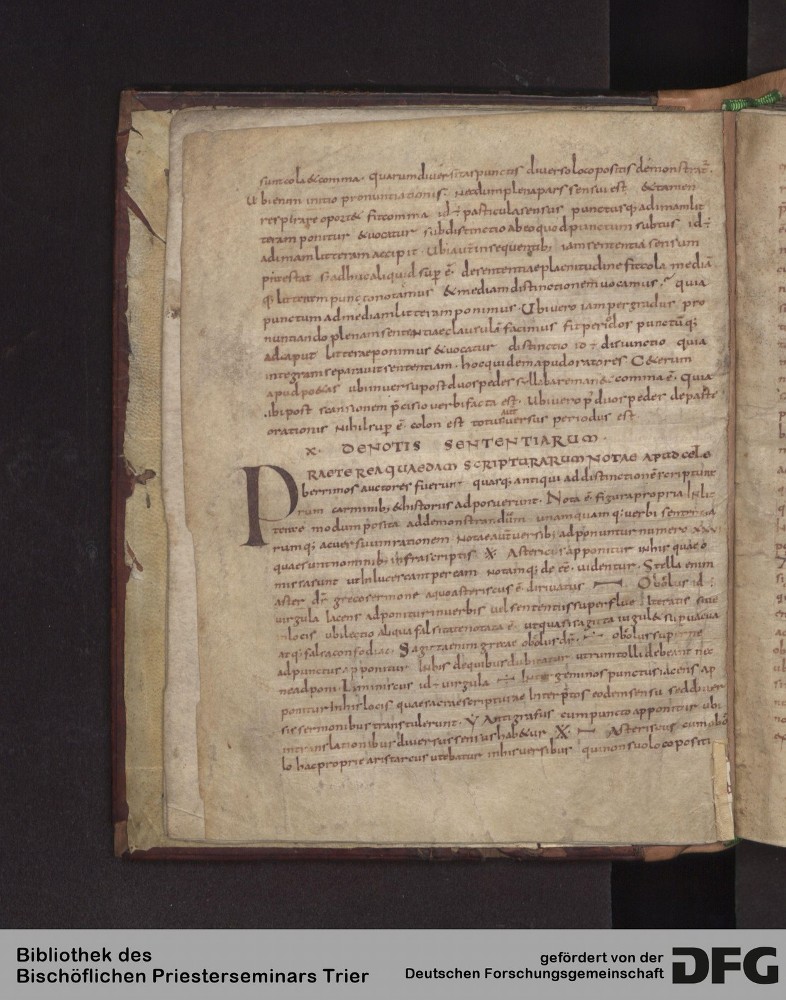 sunt cola & comma. quarum diversitas punctis diverso loco positis demonstrat̄.
Ubi enim initio pronuntiationis necdum plena pars sensui est & tamen
respirare oport& fit comma id ÷ particula sensus punctusq; ad imam lit
teram ponitur & vocatur subdistinctio ab eo quod punctum subtus id ÷
ad imam litteram accipit. Ubi aut in sequentib; iam sententia sensum
prestat s; adhuc aliquid sup ē. de sententiae plenitudine fit cola mediā
q; litteram puncto notamus & mediam distinctionem vocamus. quia
punctum ad mediam litteram ponimus. Ubi vero iam per gradus pro
nuntiando plenam sententiae clausulā facimus fit periodos punctūq;
ad caput litterae ponimus & vocatur distinctio id ÷ disiunctio quia
integram separavit sententiam. hoc quidem apud oratores C&erum
apud po&as ubi in versu post duos pedes syllaba reman& comma ē. Quia
ibi post scansionem p̄cisio verbi facta est. Ubi vero p̄ duos pedes de parte
orationis nihil sup ē colon est totus aut versus periodus est
X. DE NOTIS SENTENTIARUM.
PRAETEREA QUAEDAM SCRIPTURARUM NOTAE APUD CELE
berrimos auctores fuerunt quasq; antiqui ad distinctionē scriptura
rum carminib; & historiis adposuerunt. Nota ē figura propria in lit
terae modum posita ad demonstrandum unamquamq; verbi sententia
rumq; ac versuum rationem Notae aut versib; adponuntur numero XXVI
quae sunt nominib; infra scriptis ※ Asteriscus apponitur in his quae o
missa sunt ut inlucescant per eam notam quae deēē videntur. Stella enim
aster dr̄ greco sermone a quo asteriscus ē dirivatus — Obolus id ÷
virgula iacens adponitur in verbis vel sententiis superflue iteratis sive
in locis ubi lectio aliqua falsitate notata ē. ut quasi sagitta iugul& supvacua
atq; falsa confodiat Sagitta enim grece obolus dr̄. Obolus superne
adpunctus apponitur in his de quibus dubitatur utrum tolli debeant nec
ne adponi. Limniscus id ÷ virgula ÷ inter geminos punctus iacens ap
ponitur in his locis quae sacrae scripturae interp̄tes eodem sensu sed diver
sis sermonibus transtulerunt. Ẏ Antigrafus cum puncto apponitur ubi
in translationibus diversus sensus hab&ur ※— Asteriscus cum obo
lo hac proprie aristarcus utebatur in his versibus qui non suo loco positi
Bibliothek des
Bischöflichen Priesterseminars Trier
gefördert von der
Deutschen Forschungsgemeinschaft
DFG